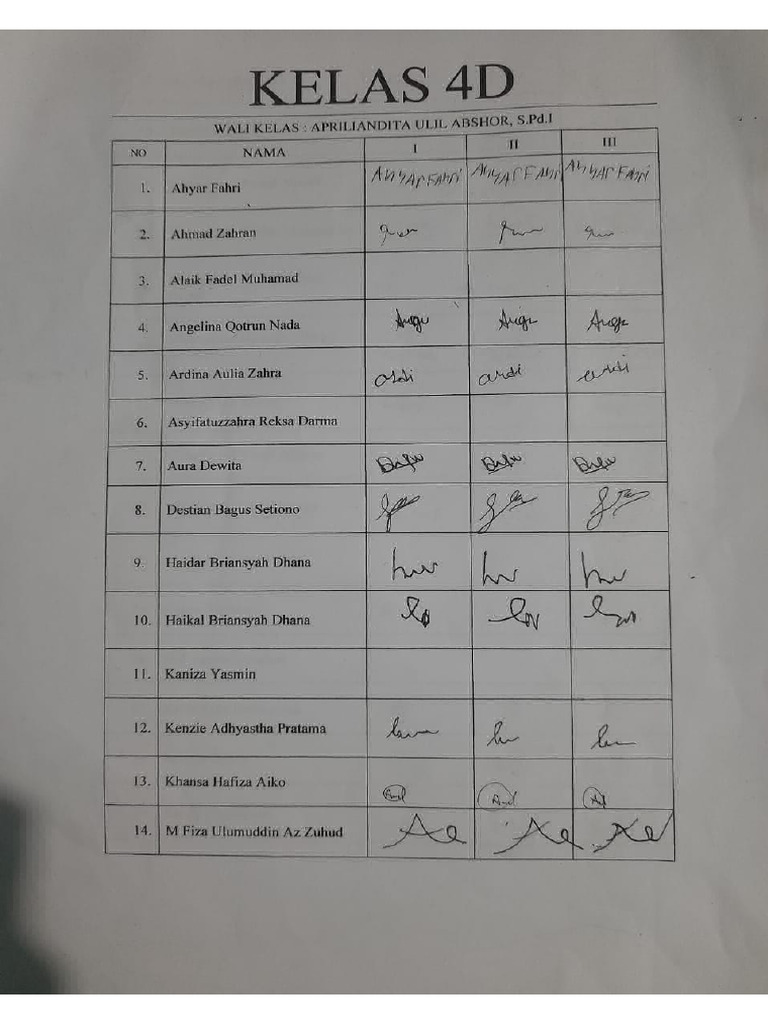 KELAS 4D
WALI KELAS : APRILIANDITA ULIL ABSHOR, S.Pd.I
NO NAMA I II III
1. Ahyar Fahri AhyAr FAhri AhyAr FAhri AhyAr FAhri
2. Ahmad Zahran
3. Alaik Fadel Muhamad
4. Angelina Qotrun Nada
5. Ardina Aulia Zahra ardi ardi ardi
6. Asyifatuzzahra Reksa Darma
7. Aura Dewita
8. Destian Bagus Setiono
9. Haidar Briansyah Dhana
10. Haikal Briansyah Dhana
11. Kaniza Yasmin
12. Kenzie Adhyastha Pratama
13. Khansa Hafiza Aiko
14. M Fiza Ulumuddin Az Zuhud